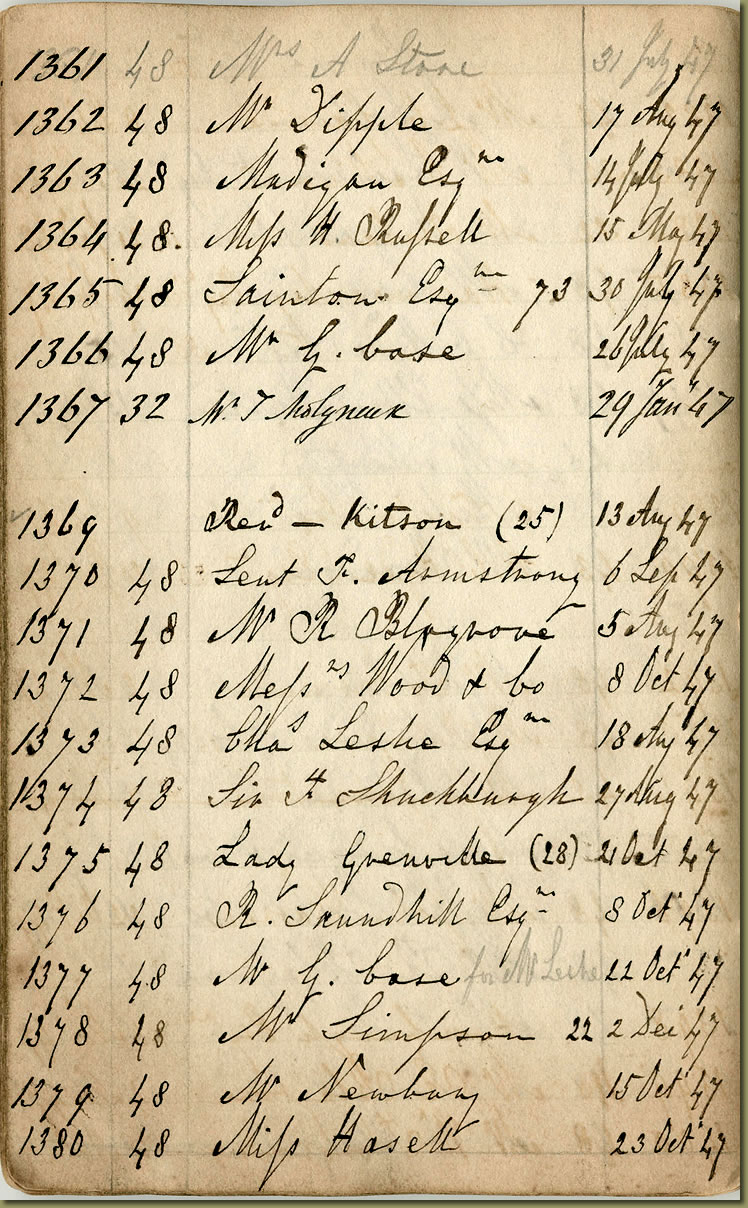 1361 48 Mrs A Stone 31 July 47
1362 48 Mr Dipple 17 Aug 47
1363 48 Madigan Esqre 14 July 47
1364 48. Miss H. Russell 15 May 47
1365 48 Sainton Esqre 73 30 July 47
1366 48 Mr G. Case 26 July 47
1367 32 Mr T Molyneux 29 Jany 47
1369 Revd — Kitson (25) 13 Aug 47
1370 48 Leut F. Armstrong 6 Sep 47
1371 48 Mr R Blagrove 5 Aug 47
1372 48 Messrs Wood & Co 8 Oct 47
1373 48 Chas Leslie Esqre 18 Aug 47
1374 48 Sir F Shuckburgh 27 Aug 47
1375 48 Lady Grenville (28) 21 Oct 47
1376 48 R. Esqre 8 Oct 47
1377 48 Mr G. Case for Mr Leslie 22 Oct 47
1378 48 Mr Simpson 22 2 Dec 47
1379 48 Mr Newbury 15 Oct 47
1380 48 Miss Hasell 23 Oct 47